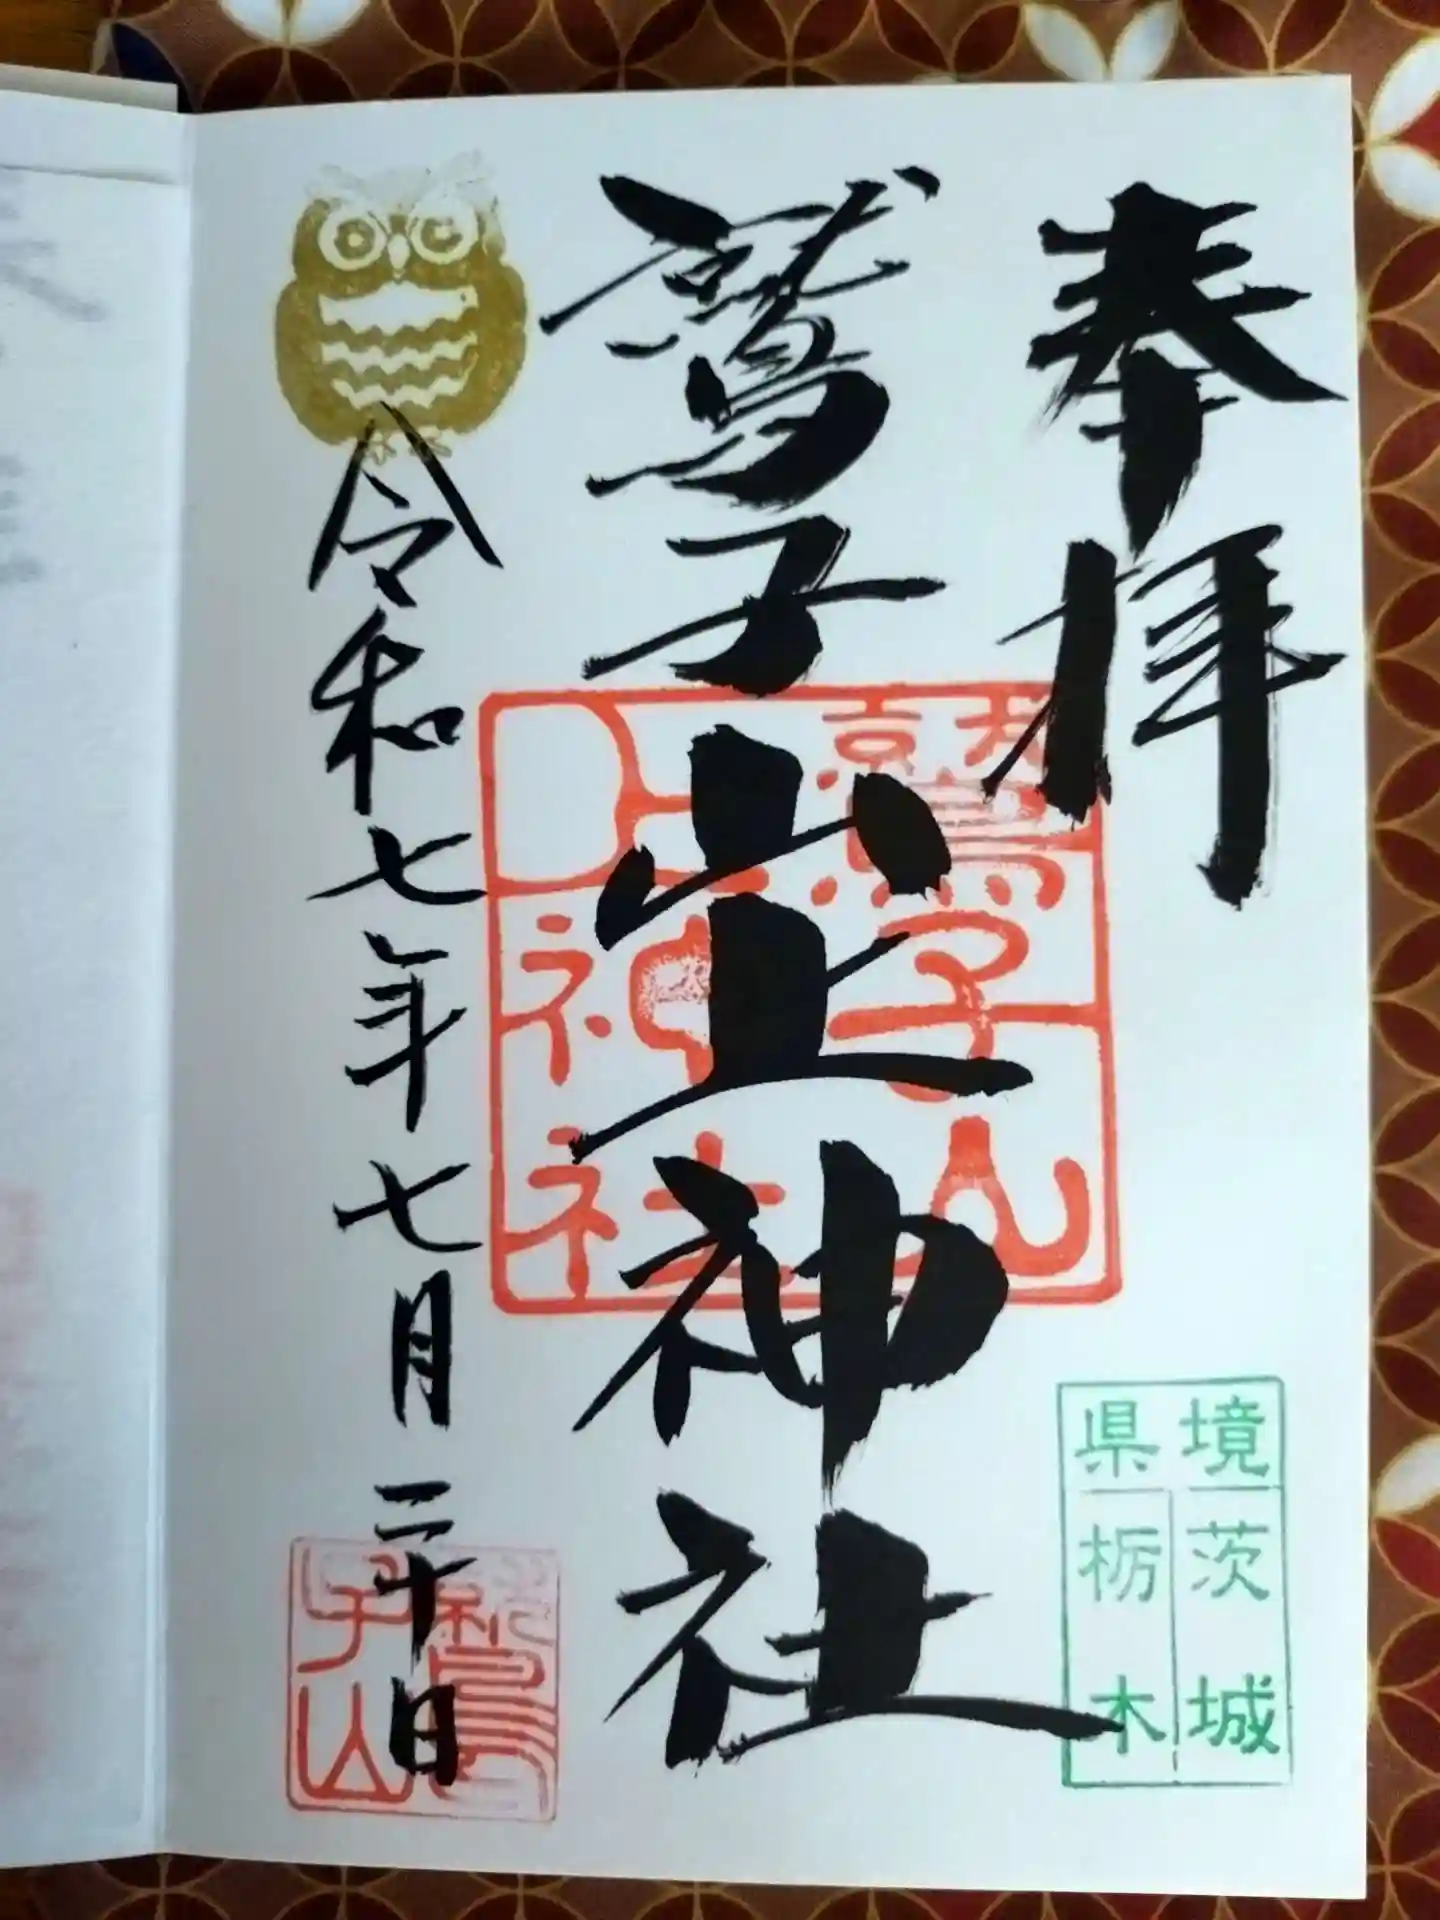 奉拝
鷲子山上神社
令和七年七月二十日
鷲子山
上神社
県境
茨城
栃木
鷲子山